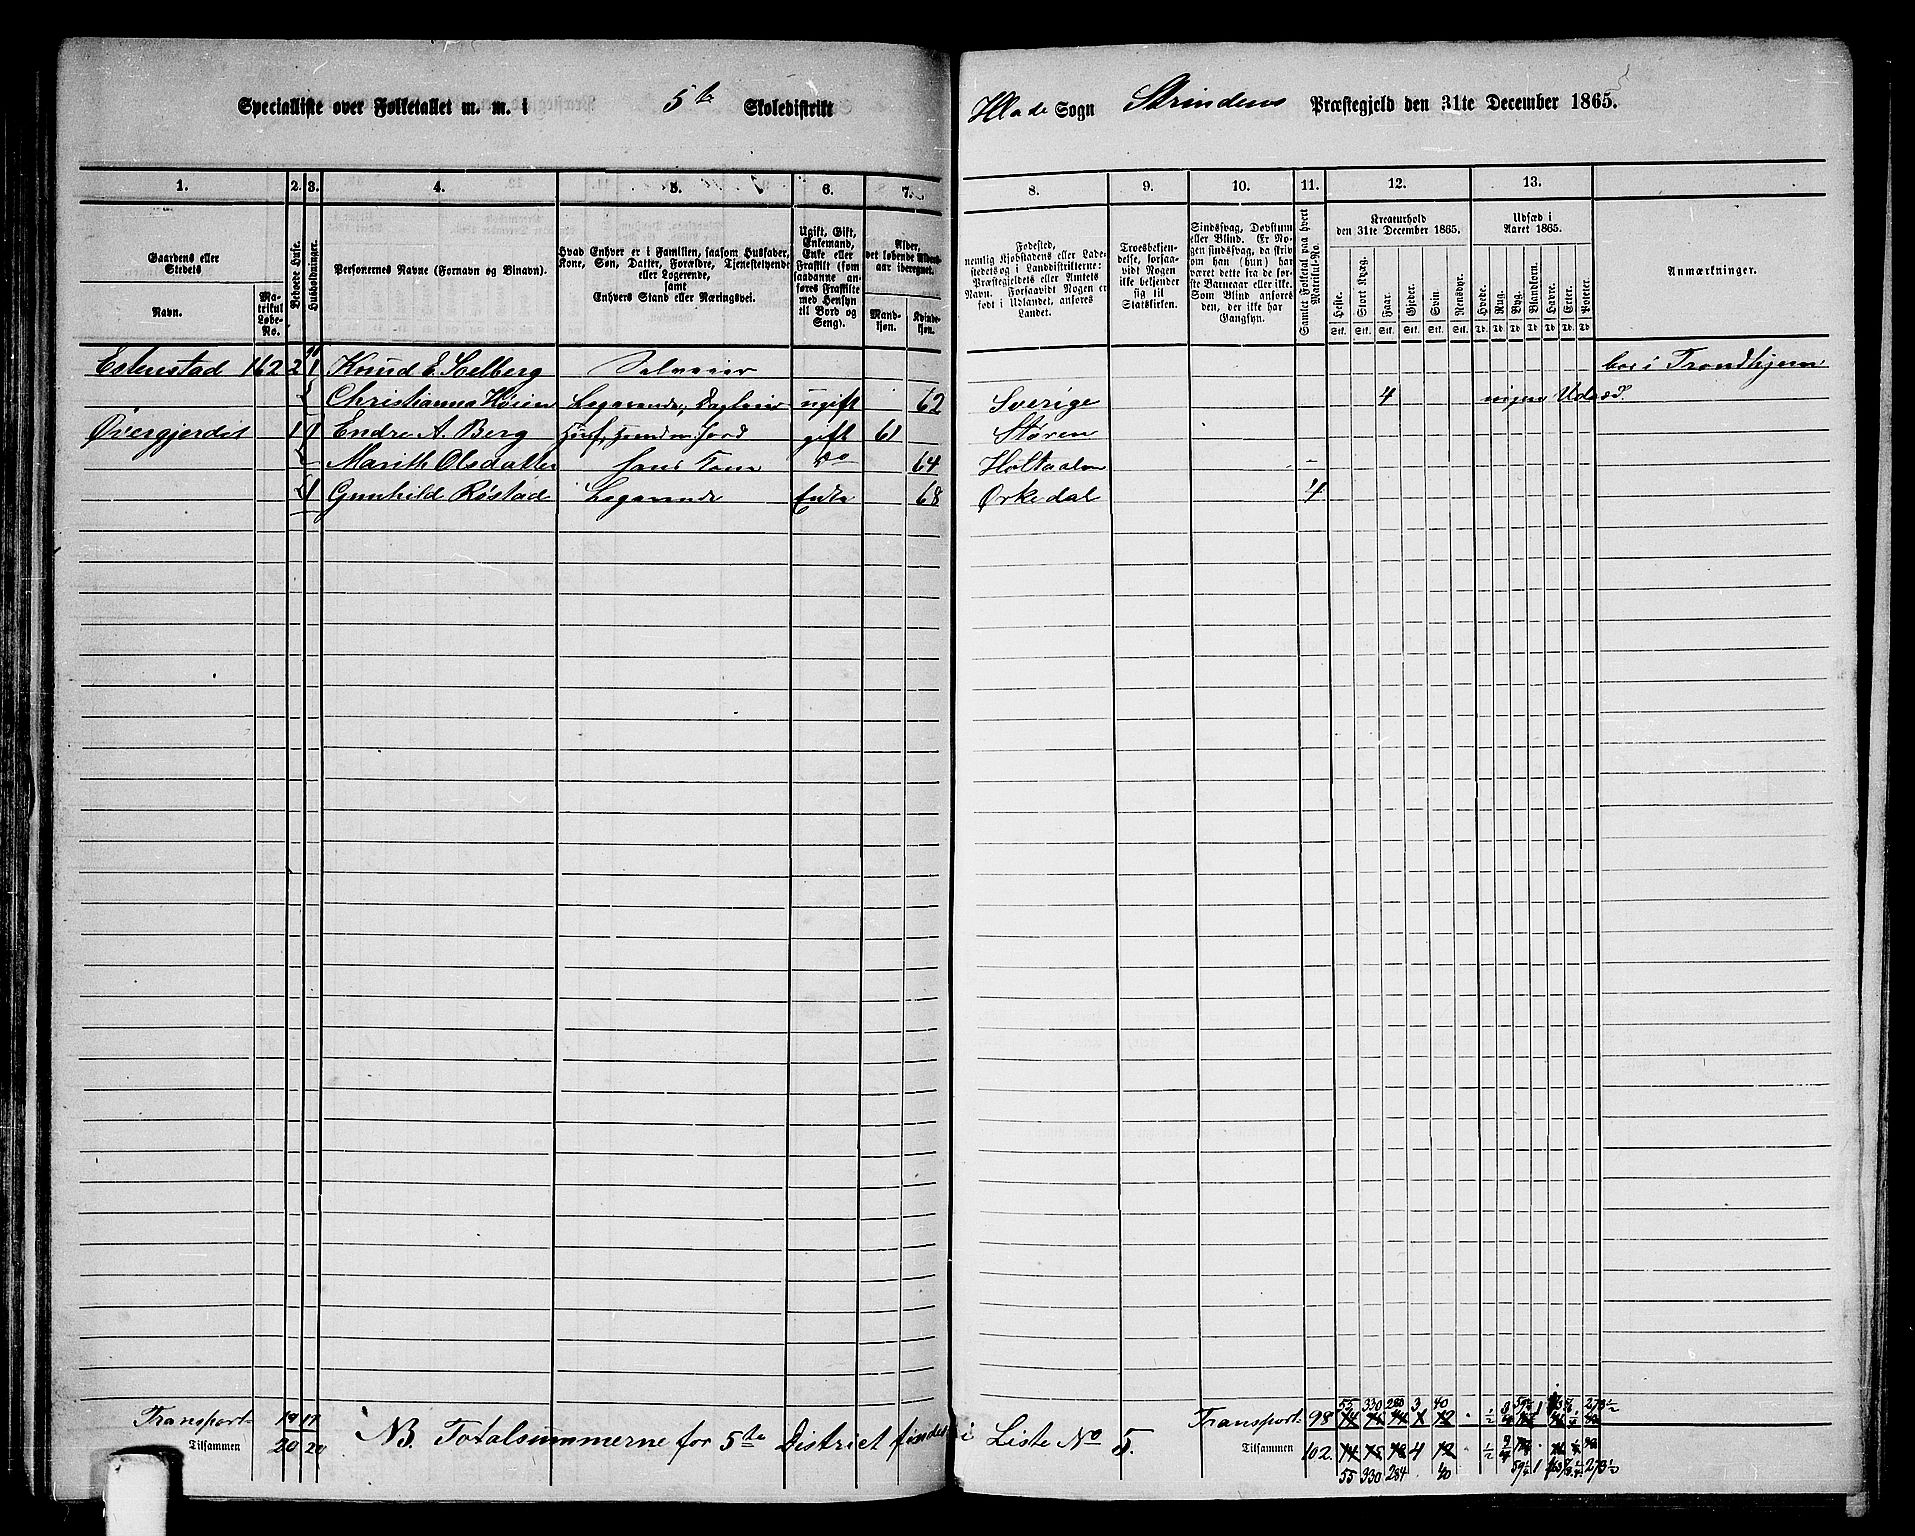 Specialliste over Folketallet m. m. i 5te Skoledistrikt Hlade Sogn Strindens Præstegjeld den 31te December 1865.
1. 2. 3. 4. 5. 6. 7. 8. 9. 10. 11. 12. 13.
Gaardens eller Stedets
Navn.
Matrikul Løbe-No.
Beboede Huse.
Husholdninger.
Personernes Navne (Fornavn og Binavn).
Hvad Enhver er i Familien, saasom Husfader, Kone, Søn, Datter, Forældre, Tjenestetyende eller Logerende, samt Enhvers Stand eller Næringsvei.
Ugift, Gift, Enkemand, Enke eller Fraskilt (som saadanne anføres Fraskilte med Hensyn til Bord og Seng).
Alder, det løbende Alders-aar iberegnet.
Mandkjøn. Kvindekjøn.
Fødested, nemlig Kjøbstadens eller Ladestedets og i Landdistrikterne: Præstegjeldets eller Amtets Navn. Forsaavidt Nogen er født i Udlandet, anføres Landet.
Troesbekjendelse, forsaavidt Nogen ikke bekjender sig til Statskirken.
Sindssvag, Døvstum eller Blind. Er Nogen sindssvag, da skriv om han (hun) har været dette fra de første Barneaar eller ikke. Som Blind anføres den, der ikke har Gangsyn.
Samlet Folketal paa hvert Matrikul-No.
Kreaturhold den 31te December 1865.
Heste. Stort Kvæg. Faar. Gjeder. Svin. Rensdyr.
Stk. Stk. Stk. Stk. Stk. Stk.
Udsæd i Aaret 1865.
Hvede. Rug. Byg. Blandkorn. Havre. Erter. Poteter.
Td. Td. Td. Td. Td. Td. Td.
Anmærkninger.
Estenstad 162 2 1 Knud E. Solberg Selveier boe i Trondhjem
Christianna Høien Logerende, ugift 62 Sverige 4 ingen Udsæd.
1 1 Endre A. Berg gift 61 Støren
Marith Olsdatter hans Kone do 64 Holtaalen
1 Gunhild Røstad Logerende Enke 68 Ørkedal 4
Transport 19 17 Transport 98 55 330 280 3 40
Tilsammen 20 20 NB. Totalsummerne for 5te District findes i Liste No 5. Tilsammen 102
55 330 284 40